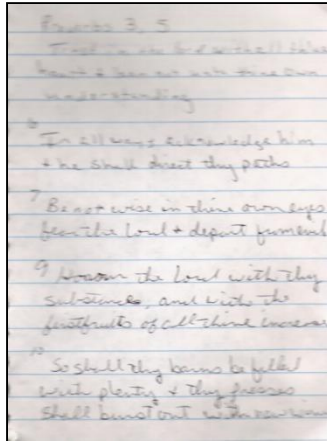 Proverbs 3, 5
Trust in the Lord with all thine
heart + lean not unto thine own
understanding
6
In all ways acknowledge him
+ he shall direct thy paths
7
Be not wise in thine own eyes
fear the Lord + depart from evil
9 Honor the Lord with thy
substance, and with the
firstfruits of all thine increase
10
So shall thy barns be filled
with plenty + thy presses
shall burst out with new wine